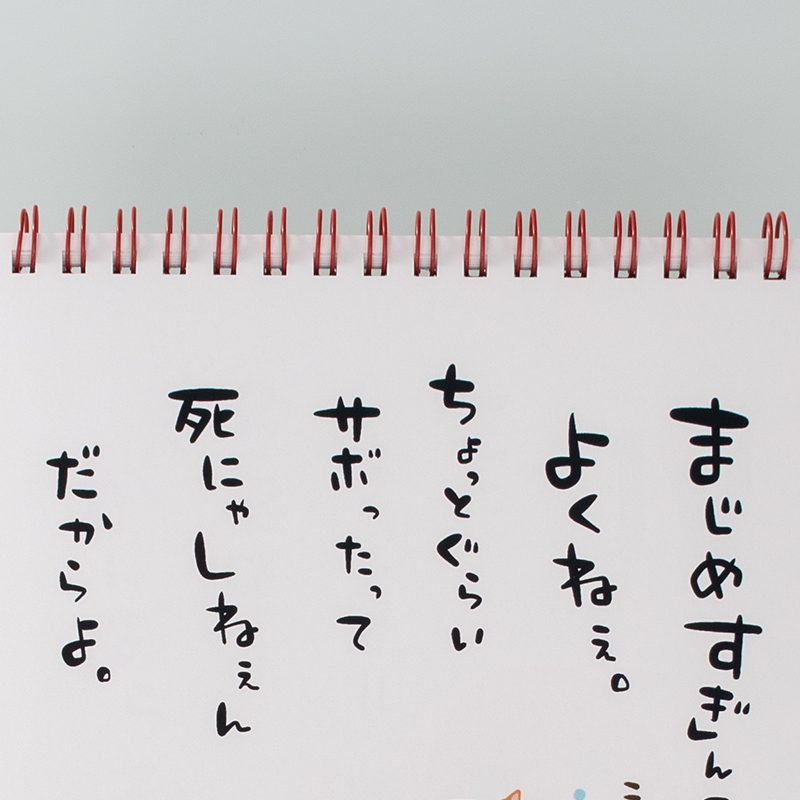 まじめすぎん
よくねぇ。
ちょっとぐらい
サボったって
死にゃしねぇん
だからよ。